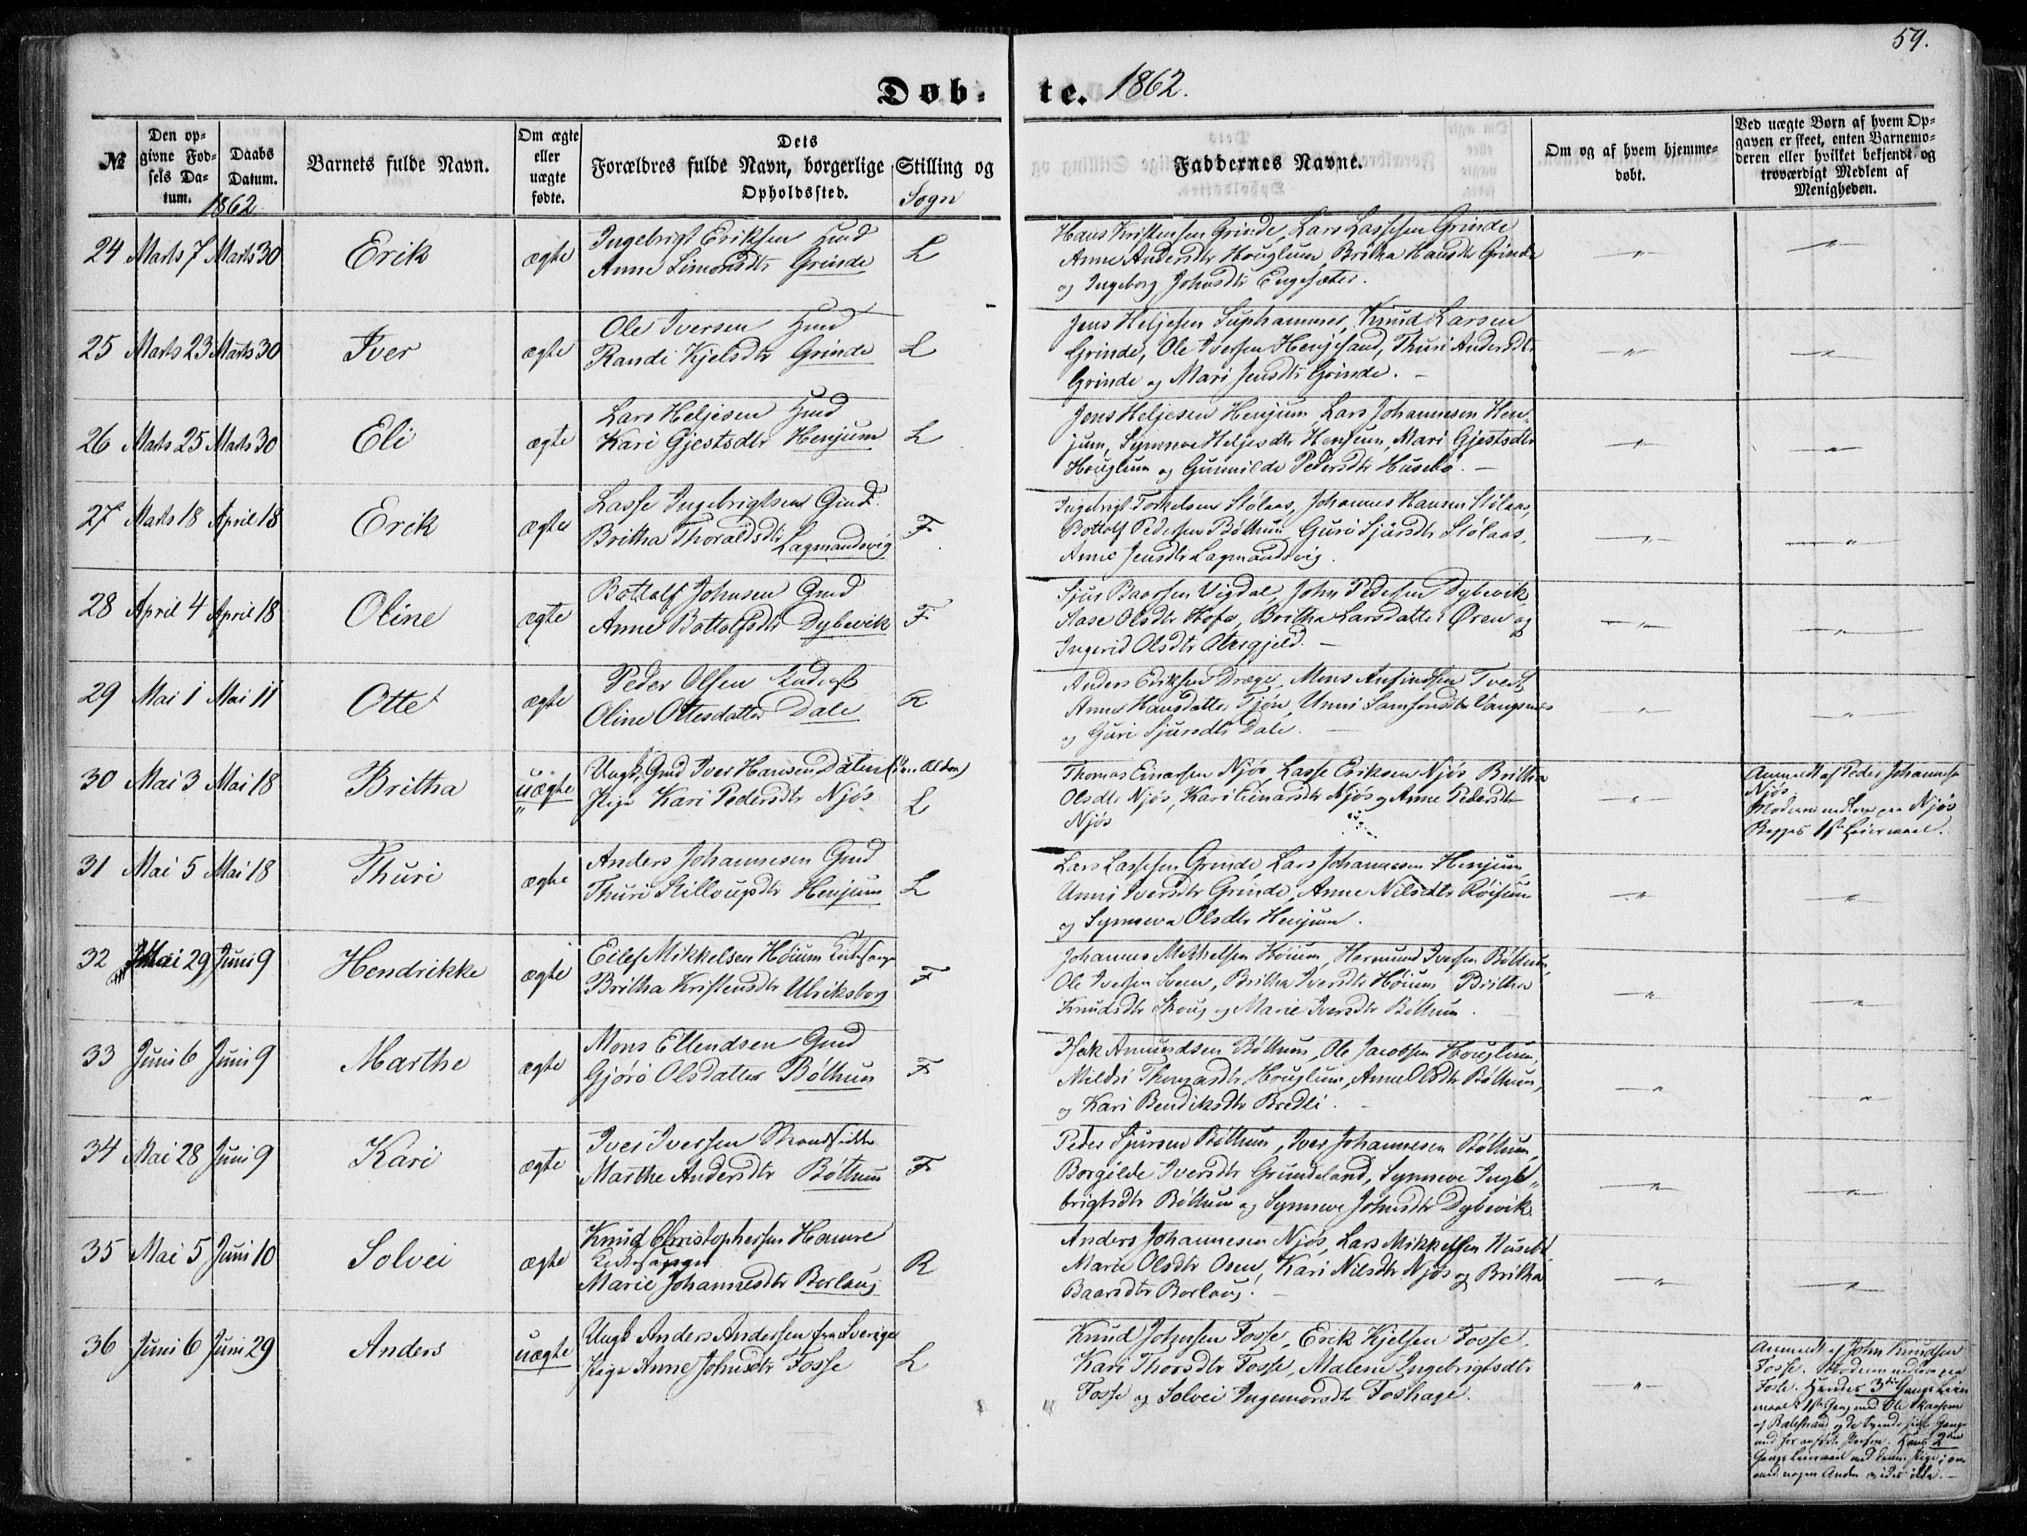 59.
Døb- te. 1862.
№
Den op-
givne Fød-
sels Da-
tum.
Daabs
Datum.
1862.
Barnets fulde Navn.
Om ægte
eller
uægte
fødte.
Dets
Forældres fulde Navn, borgerlige Stilling og
Opholdssted.
Sogn
Faddernes Navne.
Om og af hvem hjemme-
døbt.
Ved uægte Børn af hvem Op-
gaven er skeet, enten Barnemo-
deren eller hvilket bekjendt og
troværdigt Medlem af
Menigheden.
24 Marts 7 Marts 30 Erik ægte
Ingebrigt Eriksen Gmd
Anne Simonsdtr Grinde L
Hans Kristensen Grinde, Lars Lassesen Grinde
Anne Andersdtr Houglum, Britha Hansdtr Grinde
og Ingeborg Johnsdtr Engesæter.
25 Marts 23 Marts 30 Iver ægte
Ole Iversen Gmd
Randi Kjelsdtr Grinde L
Jens Heljesen Suphammer, Knud Larsen
Grinde, Ole Iversen Henjesand, Thuri Andersdtr
Grinde og Mari Jensdtr Grinde. -
26 Marts 25 Marts 30 Eli ægte
Lars Heljesen Gmd
Kari Gjestsdtr Henjum L
Jens Heljesen Henjum, Lars Johannesen Hen-
jum, Synneve Heljesdtr Henjum, Mari Gjestsdtr
Houglum og Gunnilde Pedersdtr Husebø. -
27 Marts 18 April 18 Erik ægte
Lasse Ingebrigtsen Gmd.
Britha Thoraldsdtr Lagmandsvig F.
Ingebrigt Torkelsen Stølaas, Johannes Hansen Stølaas,
Bottolf Pedersen Bøthun, Guri Sjursdtr Stølaas,
Anne Jensdtr Lagmandsvig.
28 April 4 April 18 Oline ægte
Bottolf Johnsen Gmd
Anne Bottolfsdtr Dybevik F
Sjur Baarsen Vigdal, John Pedersen Dybevik,
Aase Olsdtr Hofe, Britha Larsdatter Øren og
Ingerid Olsdtr Obergjeld. -
29 Mai 1 Mai 11 Otte ægte
Peder Olsen
Oline Ottesdatter Dale R
Anders Eriksen Dræge, Mons Ansindsen Tveit,
Anne Hansdatter Tjøn, Unni Samsonsdtr Vangsnes
og Guri Sjursdtr Dale.
30 Mai 3 Mai 18 Britha uægte
Ungk. Gmd Iver Hansen Dalen (i Olden)
Pige Kari Pedersdtr Njøs L
Thomas Einarsen Njøs, Lasse Eriksen Njøs Britha
Olsdtr Njøs, Kari Einarsdtr Njøs og Anne Pedersdtr
Njøs
Anmeldt af Peder Johannesen
Njøs
Moderen paa Njøs
Begges 1ste Leiermaal.
31 Mai 5 Mai 18 Thuri ægte
Anders Johannesen Gmd
Thuri Stillougsdtr Henjum L
Lars Lassesen Grinde, Lars Johannesen Henjum,
Unni Iversdtr Grinde, Anne Nilsdtr Røisum
og Synneva Olsdtr Henjum.
32 Mai 29 Juni 9 Hendrikke ægte
Eilef Mikkelsen Høium Kirkesanger
Britha Kristensdtr Ulriksborg F
Johannes Michelsen Høium, Hermund Iversen Bøthun,
Ole Iversen Svem, Britha Iversdtr Høium Britha
Knudsdtr Skoug og Marie Iversdtr Bøthun.
33 Juni 6 Juni 9 Marthe ægte
Mons Ellendsen Gmd
Gjørø Olsdatter Bøthun F
Isak Amundsen Bøthun, Ole Jacobsen Houglum,
Mildri Thomasdtr Houglum, Anne Olsdtr Bøthun,
og Kari Bendiksdtr Bredli. -
34 Mai 28 Juni 9 Kari ægte
Iver Iversen Strandsidder
Marthe Andersdtr Bøthun F
Peder Sjursen Bøthun, Iver Johannesen Bøthun,
Borgilde Iversdtr Grundeland, Synneve Inge-
brigtsdtr Bøthun og Synneve Johnsdtr Dybevik.
35 Mai 5 Juni 10 Solvei ægte
Knud Christophersen Hamre
Kirkesanger
Marie Johannesdtr Borlaug R
Anders Johannesen Njøs, Lars Mikkelsen Husebø
Marie Olsdtr Osen, Kari Nilsdtr Njøs og Britha
Baarsdtr Borlaug. -
36 Juni 6 Juni 29 Anders uægte
Ungk Anders Andersen fra Sverige
Pige Anne Johnsdtr Fosse L
Knud Johnsen Fosse, Erik Kjelsen Fosse,
Kari Thorsdtr Fosse, Malene Ingebrigtsdtr
Fosse og Solvei Ingemorsdtr Foshage.
Anmeldt af John Knudsen
Fosse. Moderen paa
Fosse. Hendes 3die Gangs Leier
maal: 1ste Gang med Ole
af Balestrand og de Gang
med her anførte Person. Hans 2den
Gangs Leiermaal med denne Pige; om
med nogen Anden vides ikke. -